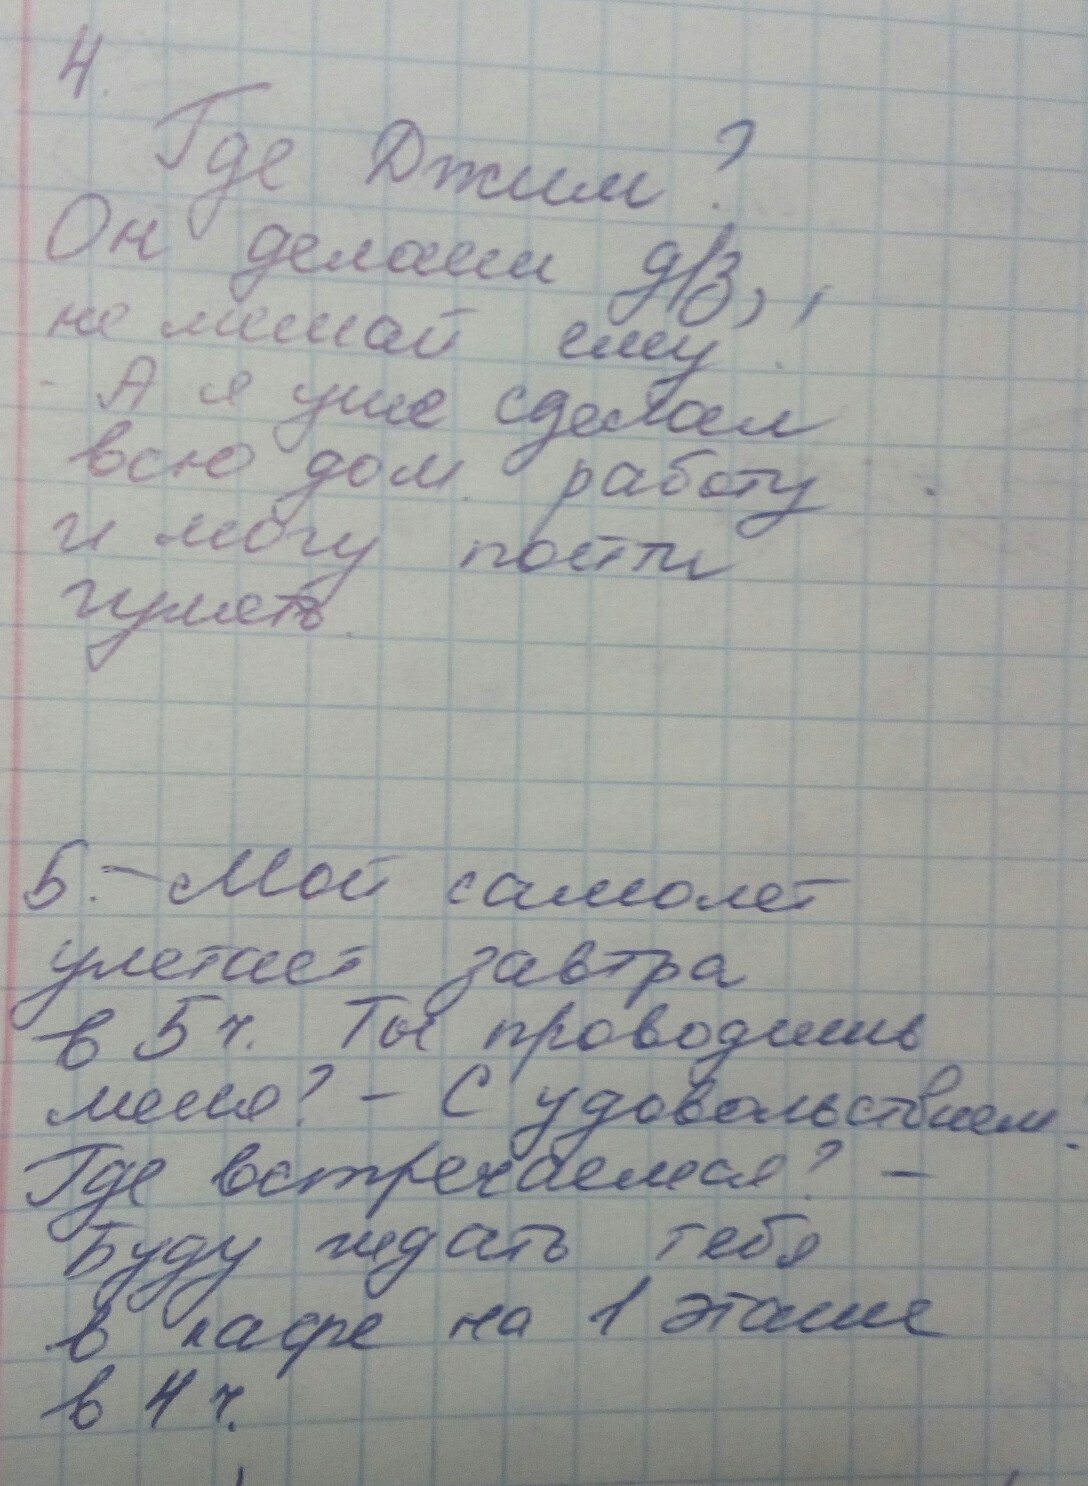 4.
Где Джим?
Он делает д/з,
не мешай ему.
- А я уже сделал
всю дом. работу
и могу пойти
гулять.
5. - Мой самолет
улетает завтра
в 5 ч. Ты проводишь
меня? - С удовольствием.
Где встречаемся? -
Буду ждать тебя
в кафе на 1 этаже
в 4 ч.